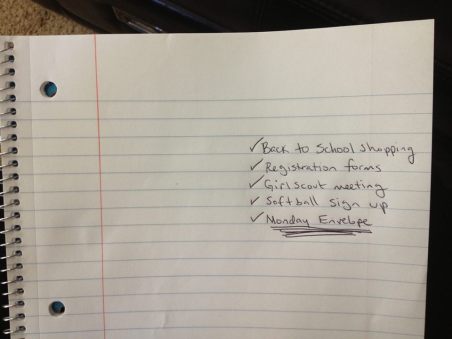 ✓Back to School shopping
✓Registration forms
✓Girl Scout meeting
✓Softball sign up
✓Monday Envelope